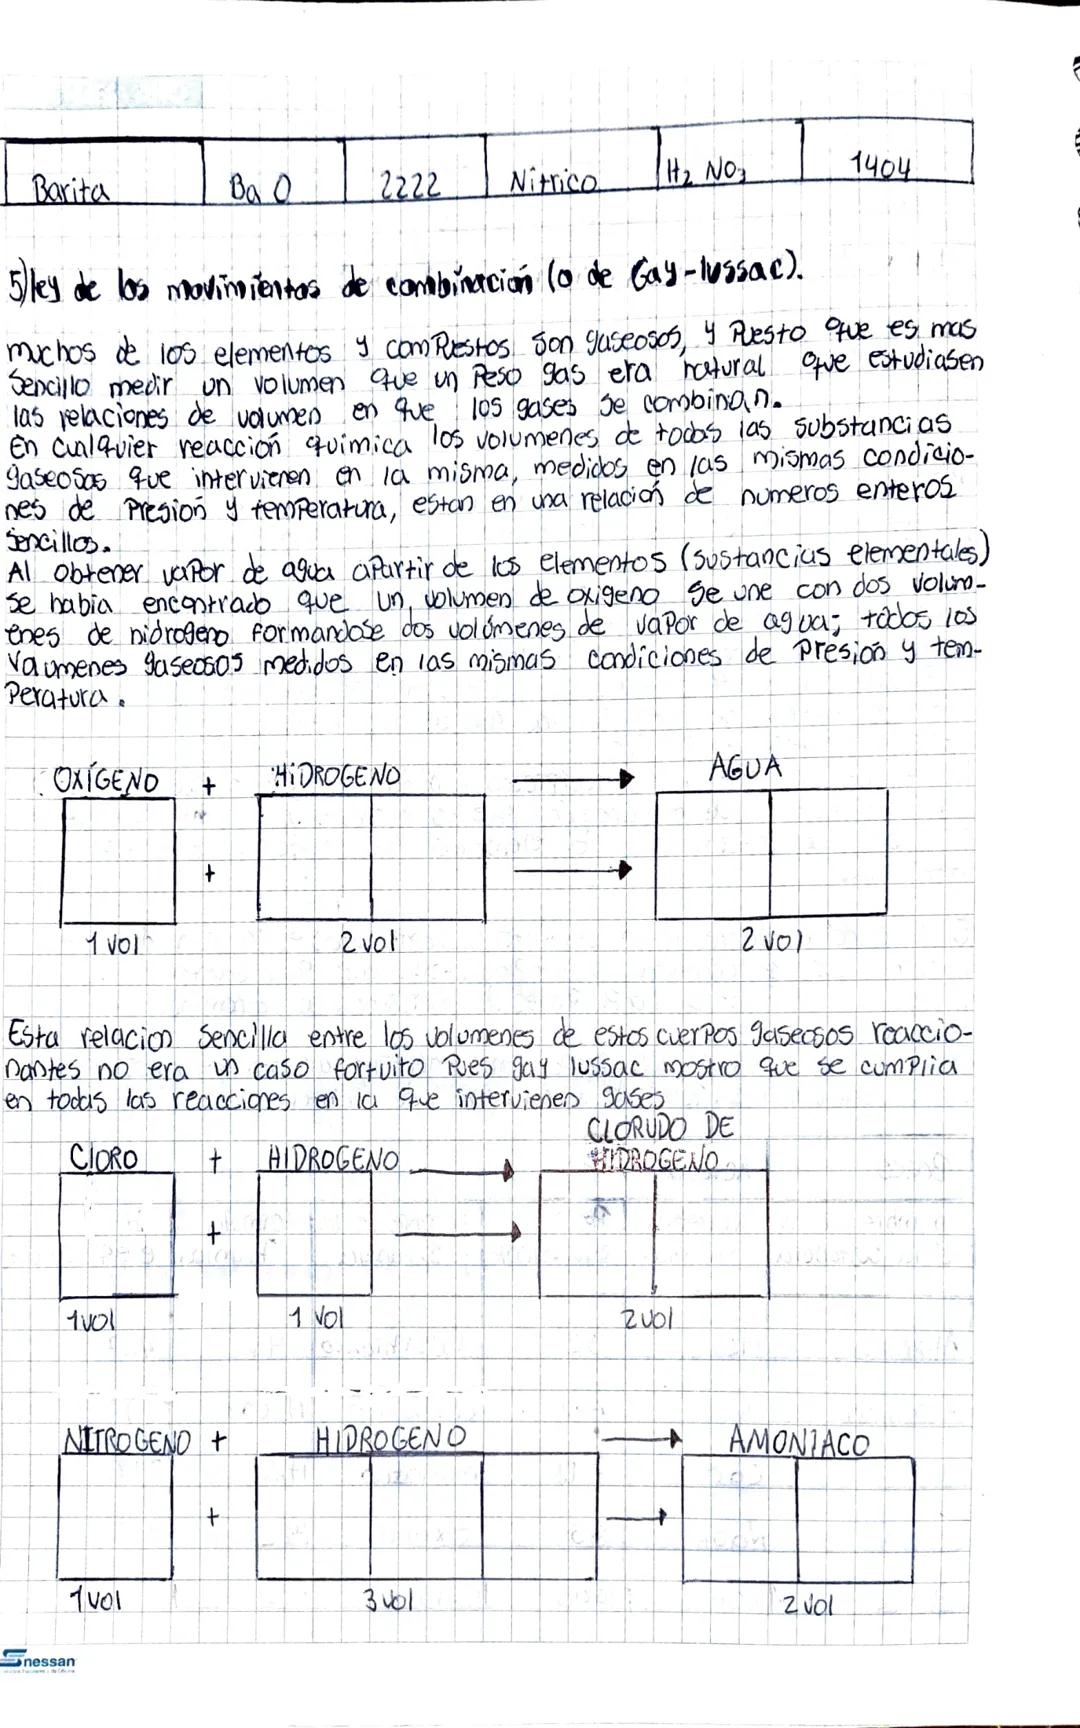 Barita Ba O 2222 Nitrico H2 NO3 1404
5) ley de los movimientos de combinación (o de Gay-lussac).
muchos de los elementos y compuestos son gaseosos, y Puesto que es mas
Sencillo medir un volumen que un Peso gas era natural que estudiasen
las relaciones de volumen en que los gases se combinan.
En cualquier reacción quimica los volumenes de todas las substancias
gaseosas que intervienen en la misma, medidos en las mismas condicio-
nes de Presión y temperatura, estan en una relación de numeros enteros
Sencillos.
Al obtener vapor de agua apartir de los elementos (sustancias elementales)
se habia encontrado que un volumen de oxigeno se une con dos volum-
enes de hidrogeno formandose dos volúmenes de vapor de agua; todos los
Vaumenes gaseosos medidos en las mismas condiciones de Presión y tem-
Peratura.
OXÍGENO + HIDROGENO AGUA
+
1 vol 2 vol 2 vol
Esta relacion Sencilla entre los volumenes de estos cuerpos gaseosos reaccio-
nantes no era un caso fortuito Pues gay lussac mostro que se cumplia
en todas las reacciones en la que intervienen gases
CLORUDO DE
ClORO + HIDROGENO HIDROGENO
+
1vol 1 vol 2vol
NITROGENO + HIDROGENO AMONIACO
+
1vol 3 vol 2 vol
Snessan